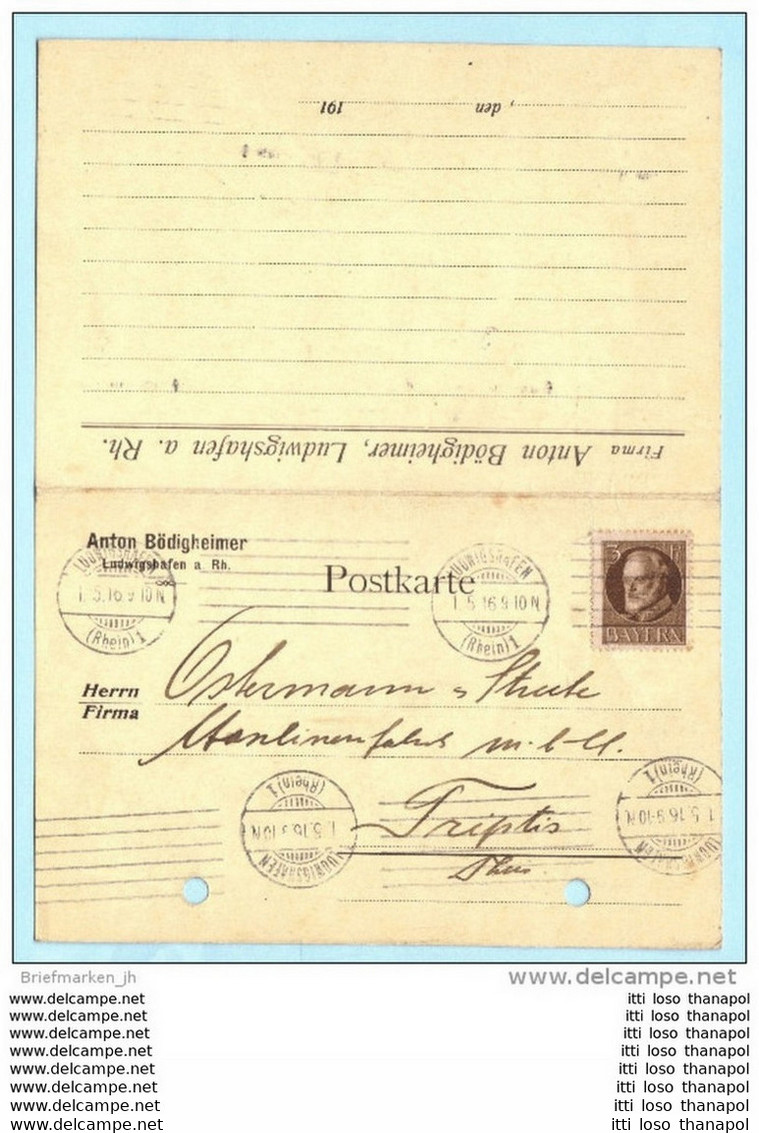 , den 191
Firma Anton Bödigheimer, Ludwigshafen a. Rh.
Anton Bödigheimer
Ludwigshafen a. Rh.
Postkarte
LUDWIGSHAFEN
1.5.16 9-10 N
(Rhein) 1
LUDWIGSHAFEN
1.5.16 9-10 N
(Rhein) 1
3 Pf
BAYERN
Herrn
Firma
Ostermann
m.b.H.
Triptis
Thür.
LUDWIGSHAFEN
1.5.16 9-10 N
(Rhein) 1
LUDWIGSHAFEN
1.5.16 9-10 N
(Rhein) 1
Briefmarken_jh www.delcampe.net
www.delcampe.com itti loso thanapol
www.delcampe.com itti loso thanapol
www.delcampe.com itti loso thanapol
www.delcampe.com itti loso thanapol
www.delcampe.com itti loso thanapol
www.delcampe.com itti loso thanapol
www.delcampe.com itti loso thanapol
www.delcampe.com itti loso thanapol